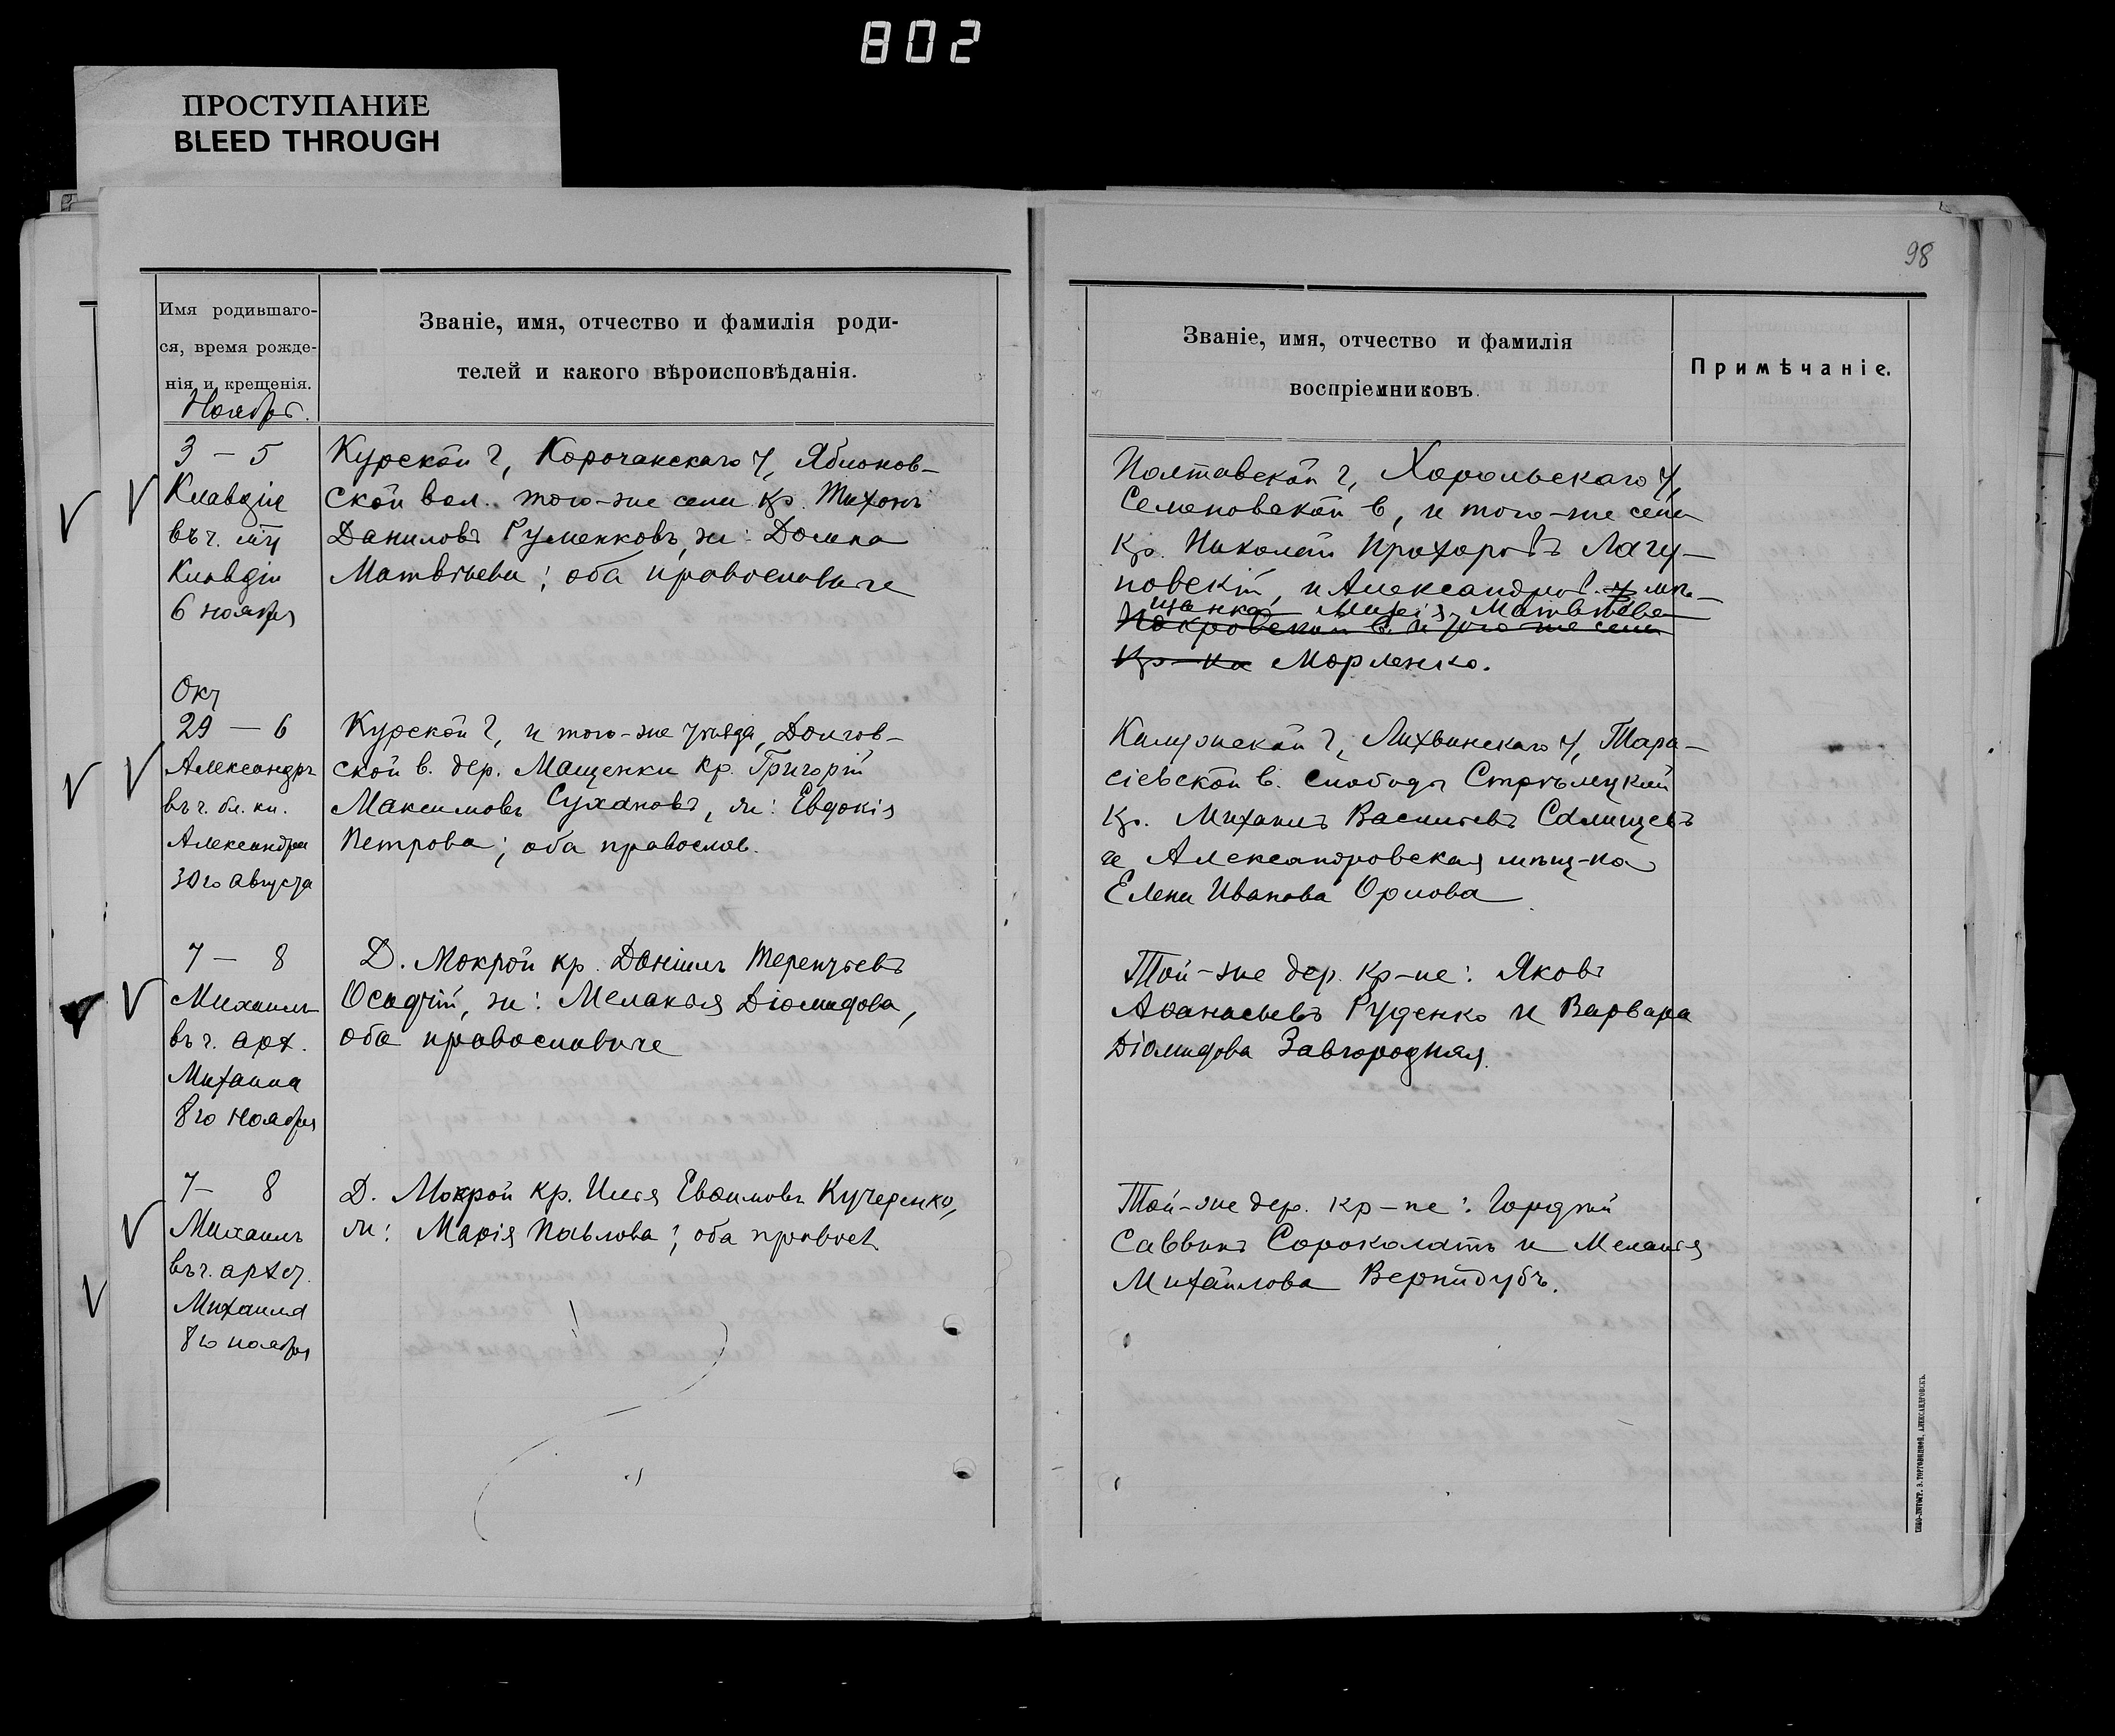 802
ПРОСТУПАНИЕ
BLEED THROUGH
98
Имя родившаго-
ся, время рожде-
нія и крещенія.
Ноябрь.
Званіе, имя, отчество и фамилія роди-
телей и какого вѣроисповѣданія.
Званіе, имя, отчество и фамилія
воспріемниковъ.
Примѣчаніе.
3 — 5
Клавдія
въ ч. мц
Клавдіи
6 ноября
Курской г, Корочанскаго у, Яблонов-
ской вол. того-же села кр. Тихонъ
Даниловъ Руменковъ, ж: Домна
Матвѣева; оба православные
Полтавской г, Хорольскаго у,
Семеновской в, и того-же села
Кр. Николай Прохоровъ Лагу-
новскій, и Александров. у мѣ-
щанка Марія Матвѣева
Покровской в. и того же села
Кр-ка Морленко.
Окт
29 — 6
Александръ
въ ч. бл. кн.
Александра
30го августа
Курской г, и того-же уѣзда, Долгов-
ской в. дер. Мащенки кр. Григорій
Максимовъ Сухановъ, ж: Евдокія
Петрова; оба православ.
Калужской г, Лихвинскаго у, Тара-
сіевской в. слободы Стрѣлецкой
Кр. Михаилъ Васильевъ
и Александровская мѣщ-ка
Елена Иванова Орлова
7 — 8
Михаилъ
въ ч. арх.
Михаила
8го ноября
Д. Мокрой кр. Даніилъ Терентьевъ
Осадчій, ж: Меланья Діомидова,
оба православные
Той-же дер. кр-не: Яковъ
Аѳанасьевъ Руденко и Варвара
Діомидова Завгородная.
7 — 8
Михаилъ
въ ч. архст.
Михаила
8го ноября
Д. Мокрой кр. Илья Евѳимовъ Кучеренко,
ж: Марія Павлова; оба правосл
Той-же дер. кр-не: Гордѣй
Саввинъ Сороколатъ и Меланья
Михайлова Вернидубъ.
ТИПО-ЛИТОГР. З. ТОРГОВИЦКОЙ, АЛЕКСАНДРОВСКЪ.